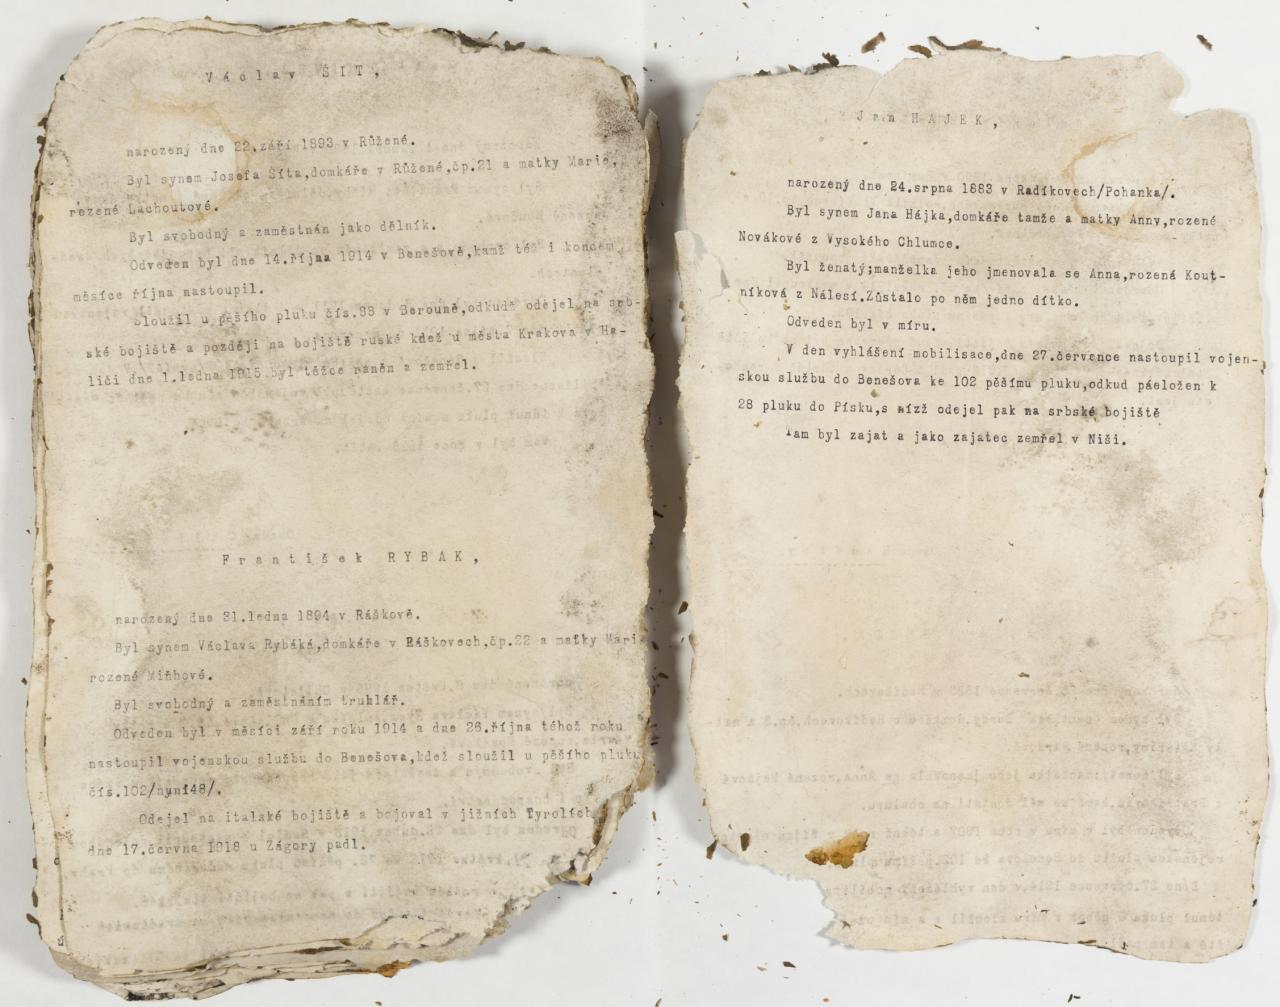 Václav ŠIT,
narozený dne 22.září 1893 v Růžené.
Byl synem Josefa Šíta,domkáře v Růžené,čp.21 a matky Marie,
rezené Lachoutové.
Byl svobodný a zaměstnán jako dělník.
Odveden byl dne 14.října 1914 v Benešově,kamž též i koncem
měsíce října nastoupil.
Sloužil u pěšího pluku čís.88 v Berouně,odkudž odejel na srb-
ské bojiště a později na bojiště ruské kdež u města Krakova v Ha-
liči dne 1.ledna 1915 byl těžce raněn a zemřel.
František RYBAK,
narozený dne 31.ledna 1894 v Ráškově.
Byl synem Václava Rybáká,domkáře v Ráškovech,čp.22 a matky Mari
rozené Miňhové.
Byl svobodný a zaměstnáním truhlář.
Odveden byl v měsíci září roku 1914 a dne 26.října téhož roku
nastoupil vojenskou službu do Benešova,kdež sloužil u pěšího pluku
čís.102/nyní48/.
Odejel na italské bojiště a bojoval v jižních Tyrolích
dne 17.června 1918 u Zágory padl.
Jan HAJEK,
narozený dne 24.srpna 1883 v Radíkovech/Pohanka/.
Byl synem Jana Hájka,domkáře tamže a matky Annv,rozené
Novákové z Vysokého Chlumce.
Byl ženatý;manželka jeho jmenovala se Anna,rozená Kout-
níková z Nálesí.Zůstalo po něm jedno dítko.
Odveden byl v míru.
V den vyhlášení mobilisace,dne 27.července nastoupil vojen-
skou službu do Benešova ke 102 pěšímu pluku,odkud páeložen k
28 pluku do Písku,s nízž odejel pak na srbské bojiště
Tam byl zajat a jako zajatec zemřel v Niši.